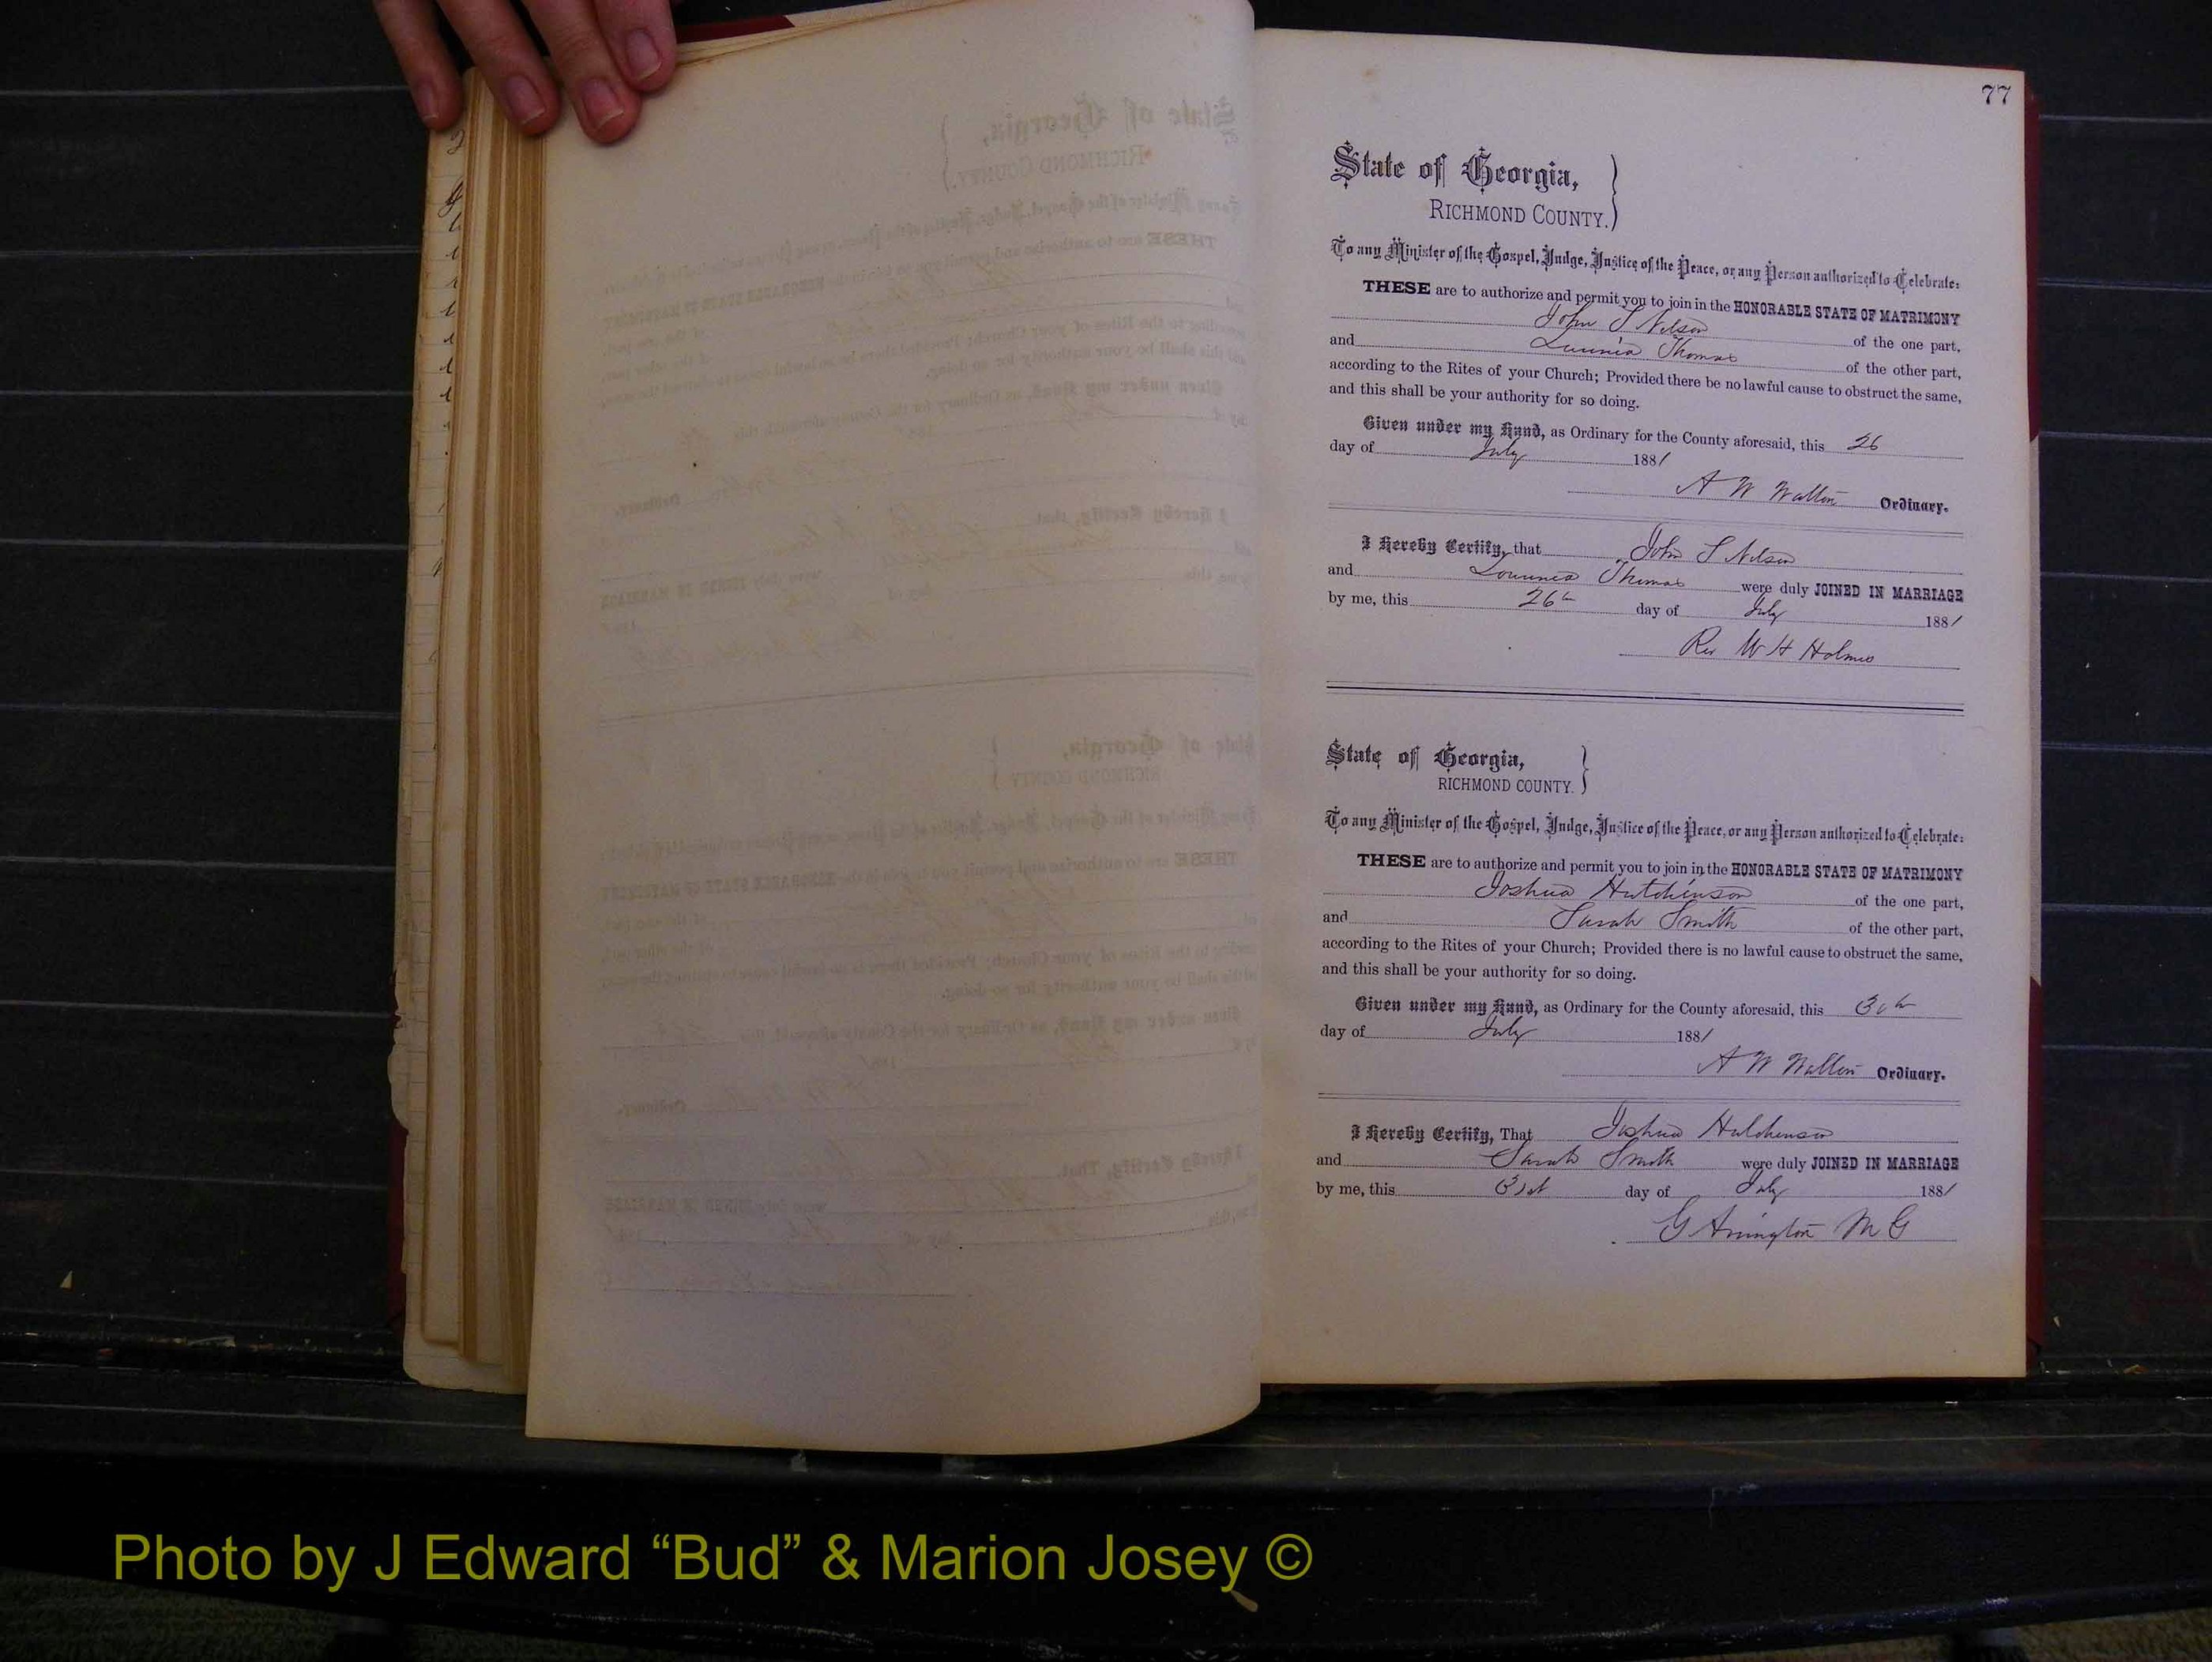 77
State of Georgia,
RICHMOND COUNTY.
To any Minister of the Gospel, Judge, Justice of the Peace, or any Person authorized to Celebrate:
THESE are to authorize and permit you to join in the HONORABLE STATE OF MATRIMONY
John S Nelson of the one part,
and Thomas of the other part,
according to the Rites of your Church; Provided there be no lawful cause to obstruct the same,
and this shall be your authority for so doing.
Given under my Hand, as Ordinary for the County aforesaid, this 26
day of July 1881
A W Walton Ordinary.
I Hereby Certify, that John S Nelson
and Thomas were duly JOINED IN MARRIAGE
by me, this 26th day of July 1881
Rev W H Holmes
State of Georgia,
RICHMOND COUNTY.
To any Minister of the Gospel, Judge, Justice of the Peace, or any Person authorized to Celebrate:
THESE are to authorize and permit you to join in the HONORABLE STATE OF MATRIMONY
Joshua Hutchinson of the one part,
and Sarah Smith of the other part,
according to the Rites of your Church; Provided there is no lawful cause to obstruct the same,
and this shall be your authority for so doing.
Given under my Hand, as Ordinary for the County aforesaid, this 30th
day of July 1881
A W Walton Ordinary.
I Hereby Certify, That Joshua Hutchinson
and Sarah Smith were duly JOINED IN MARRIAGE
by me, this 31st day of July 1881
G Arrington M G
Photo by J Edward “Bud” & Marion Josey ©